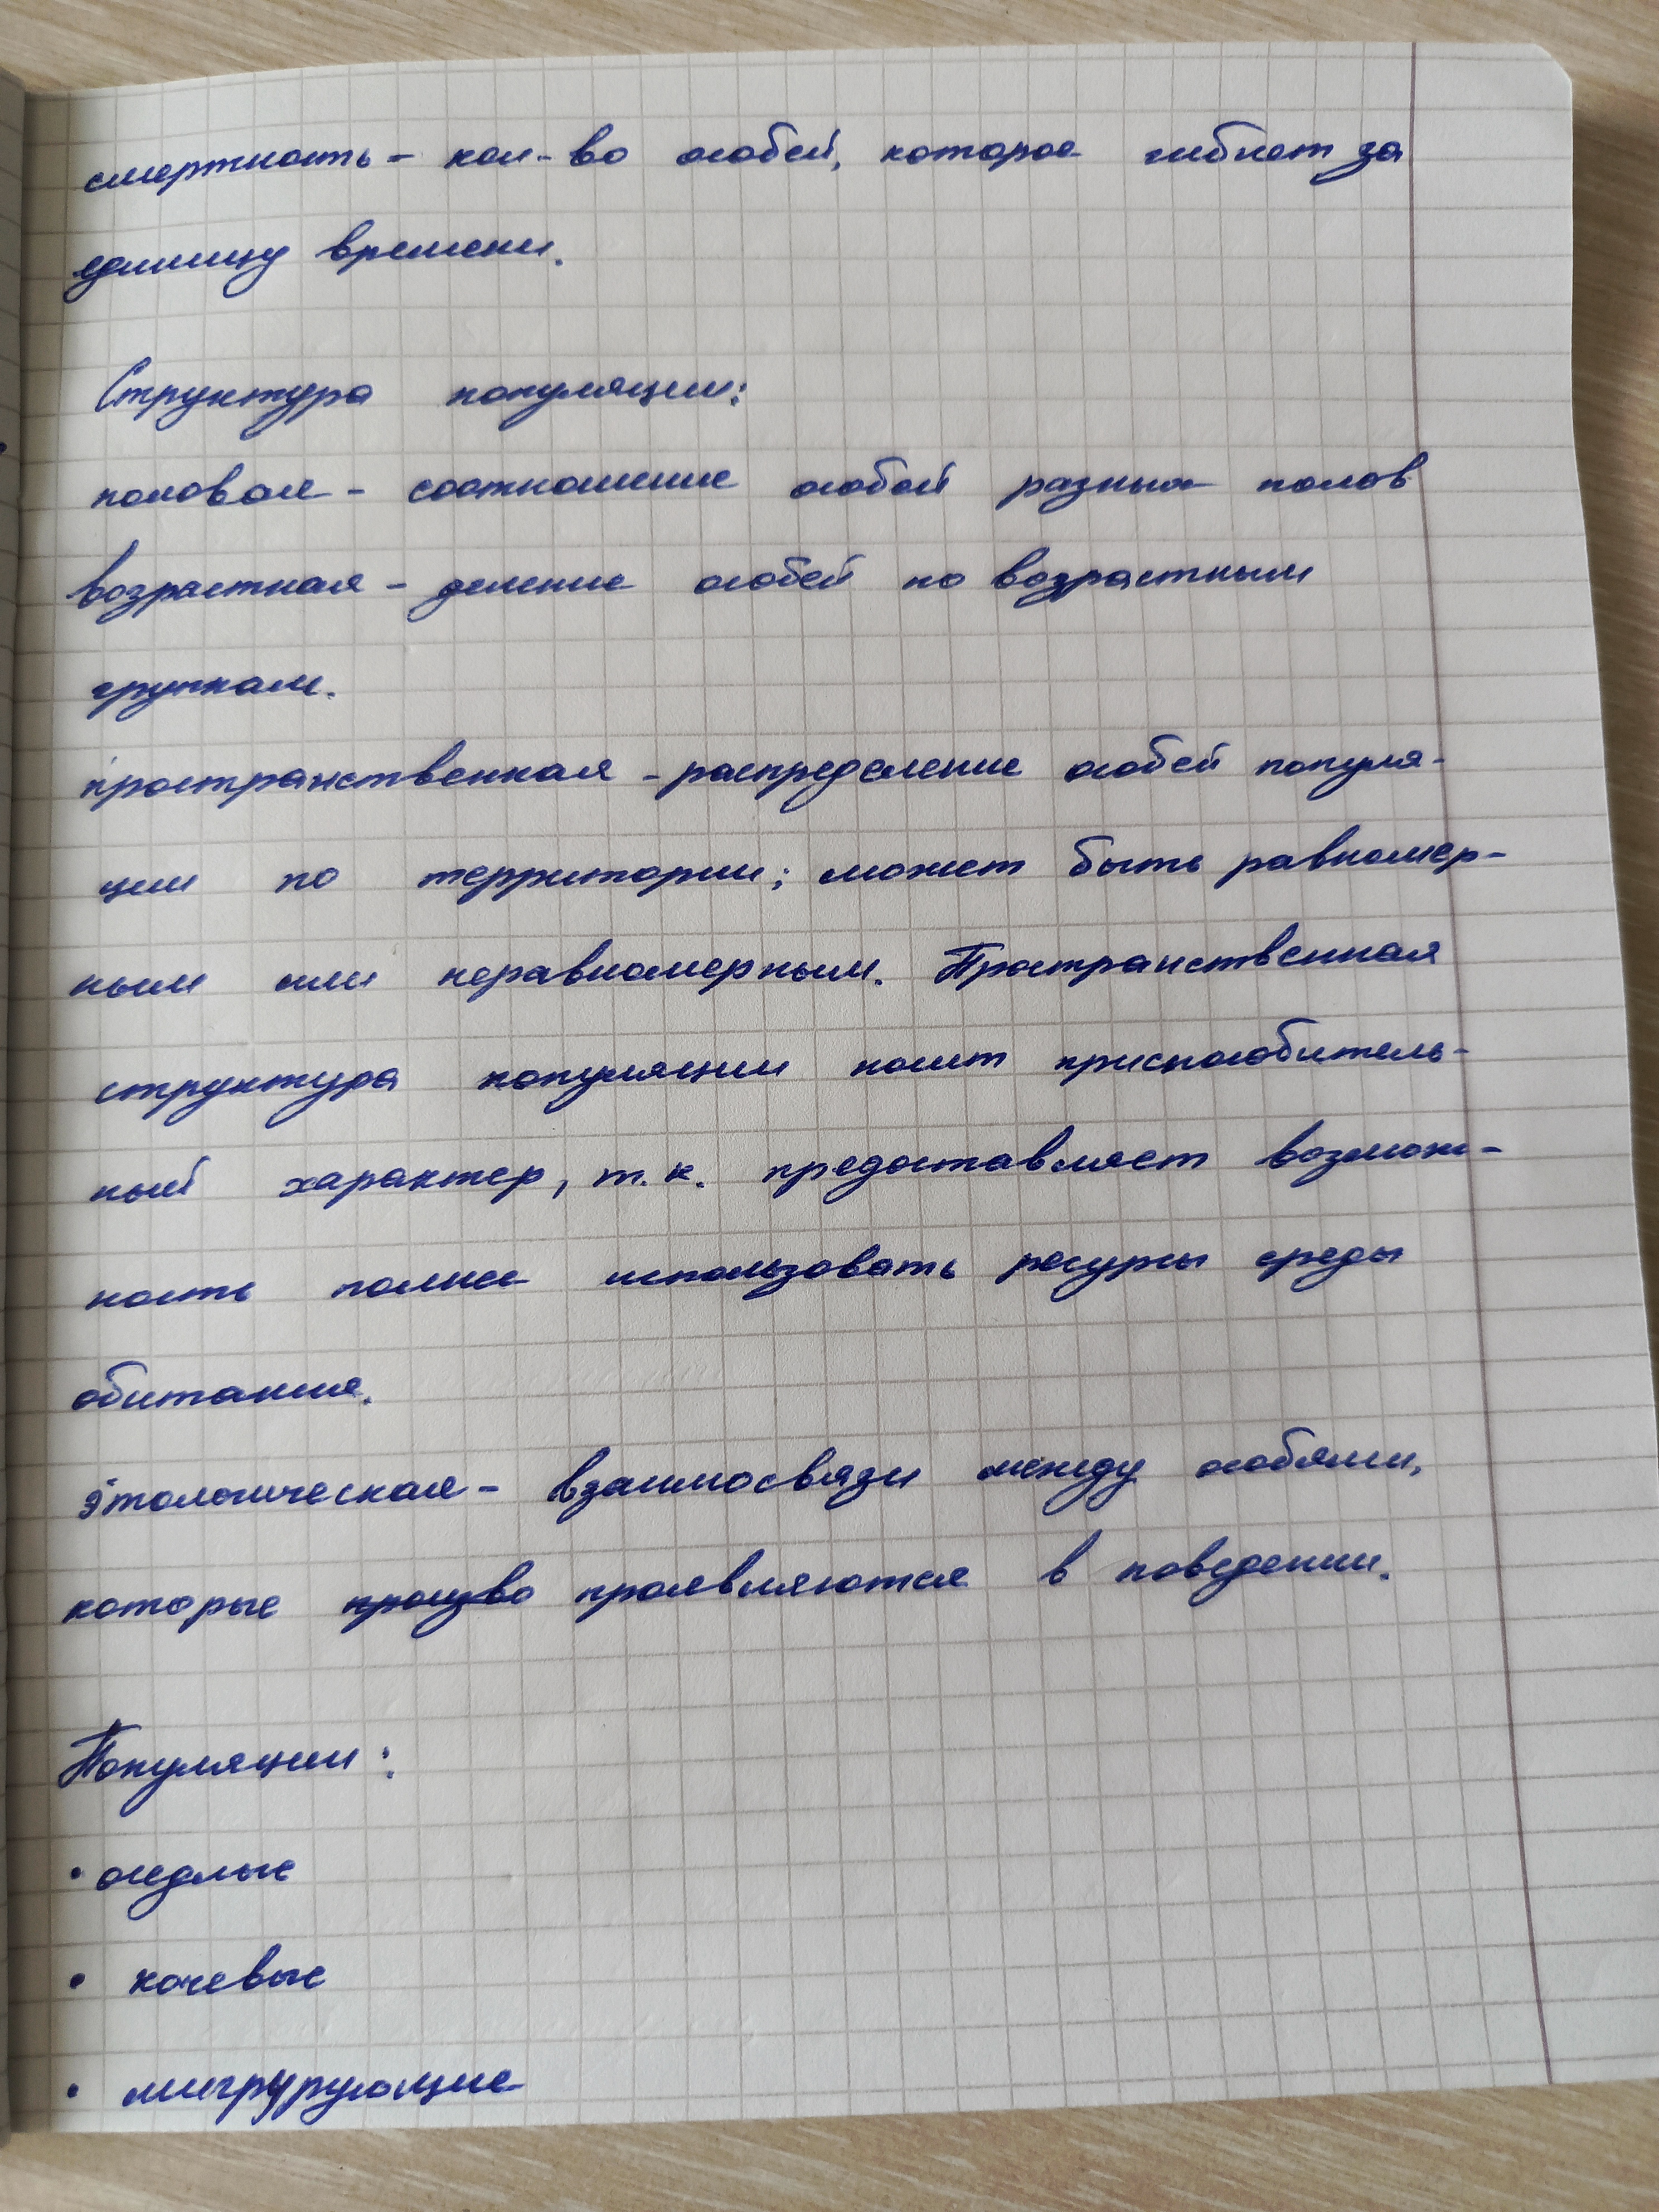 смертность - кол-во особей, которое гибнет за
единицу времени.
Структура популяции:
половая - соотношение особей разных полов
возрастная - деление особей по возрастным
группам.
пространственная - распределение особей популя-
ции по территории; может быть равномер-
ным или неравномерным. Пространственная
структура популяции носит приспособитель-
ный характер, т.к. предоставляет возмож-
ность полнее использовать ресурсы среды
обитания.
этологическая - взаимосвязи между особями,
которые проявляются в поведении.
Популяции:
• оседлые
• кочевые
• мигрурующие